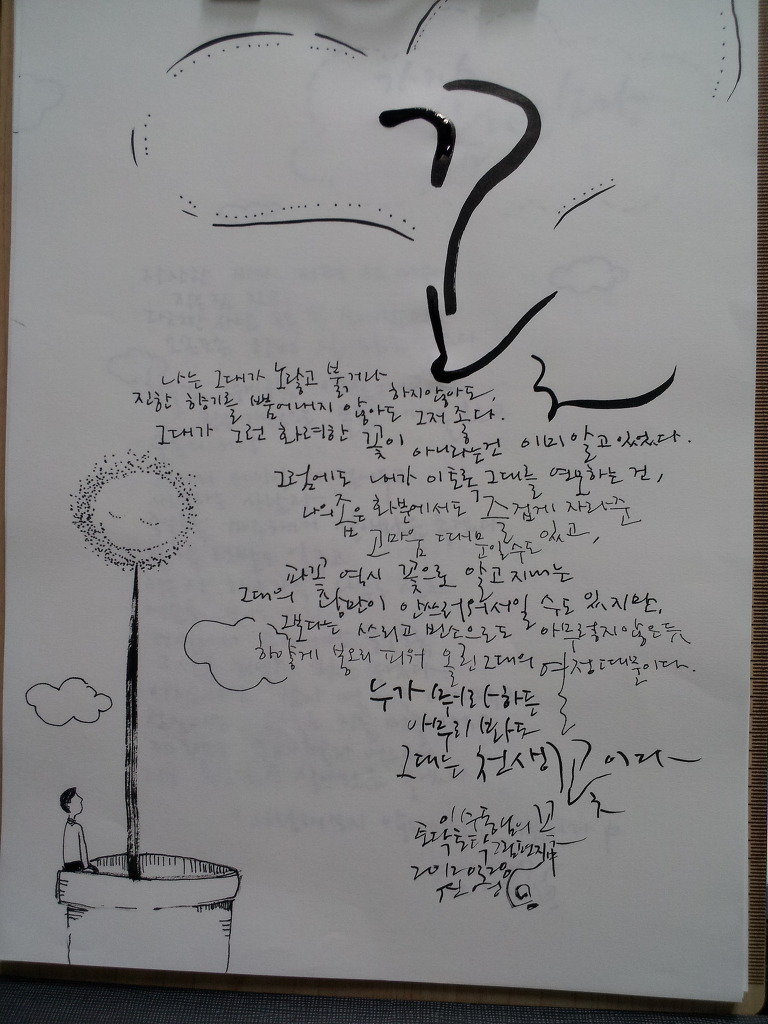 꽃
나는 그대가 노랗고 붉거나 하지않아도,
진한 향기를 뿜어내지 않아도 그저 좋다.
그대가 그런 화려한 꽃이 아니라는건 이미 알고 있었다.
그럼에도 내가 이토록 그대를 연모하는 건,
나의 좁은 화분에서도 즐겁게 자라준
고마움 때문일수도 있고,
파꽃 역시 꽃으로 알고 지내는
그대의 참만이 안쓰러워서일 수도 있지만,
그보다는 쓰리고 반손으로도 아무렇지않은듯
하얗게 봉오리 피워 올린 그대의 여정 때문이다.
누가 뭐라하든
아무리 봐도
그대는 천생 꽃이다
이수동님의 꽃
토닥토닥그림편지中